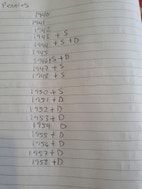 1940
1941
1942
1943 + S
1944 + S + D
1945
1946 S + D
1947 + S
1948 + S
1950 + S
1951 + D
1952 + D
1953 + D
1954 D
1955 + D
1956 + D
1957 + D
1958 + D